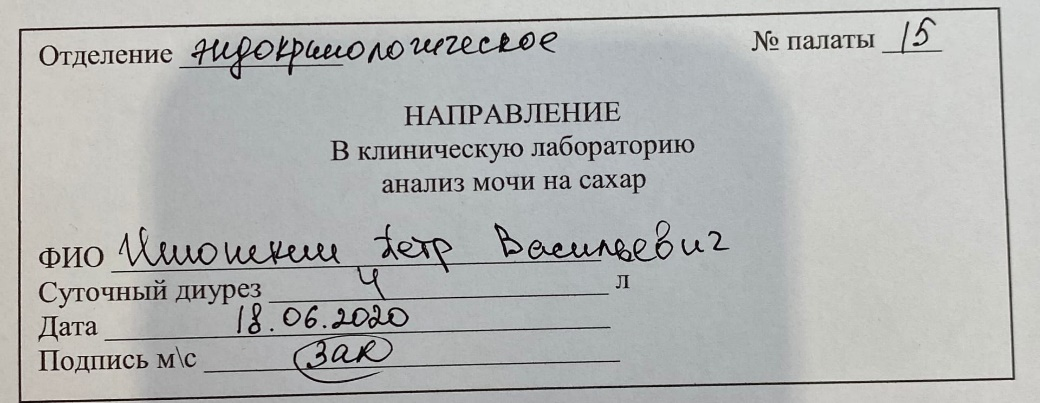 Отделение эндокринологическое № палаты 15
НАПРАВЛЕНИЕ
В клиническую лабораторию
анализ мочи на сахар
ФИО Петр Васильевич
Суточный диурез 4 л
Дата 18.06.2020
Подпись м\с Зак